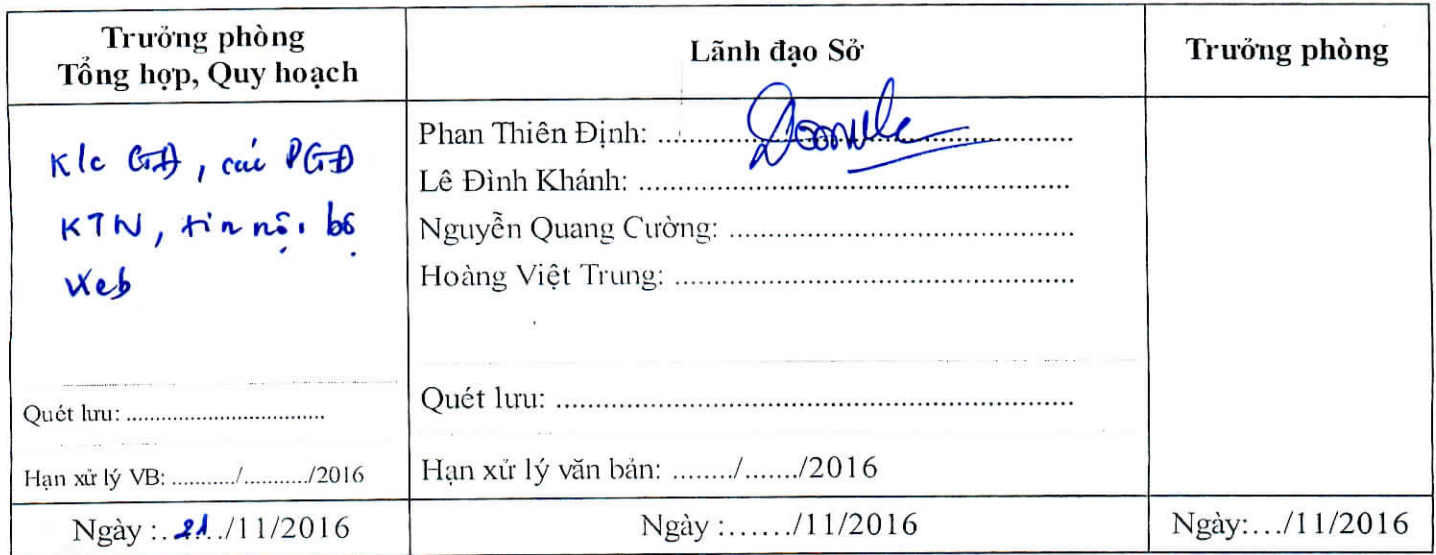 Trưởng phòng
Tổng hợp, Quy hoạch
Lãnh đạo Sở
Trưởng phòng
K/c GĐ, các PGĐ
KTN, tin nội bộ
Web
Quét lưu: .................................
Hạn xử lý VB: .........../.........../2016
Phan Thiên Định: ......................................................
Lê Đình Khánh: .......................................................
Nguyễn Quang Cường: ............................................
Hoàng Việt Trung: ...................................................
Quét lưu: ..................................................................
Hạn xử lý văn bản: ......../......./2016
Ngày :..21../11/2016
Ngày :……./11/2016
Ngày:…/11/2016